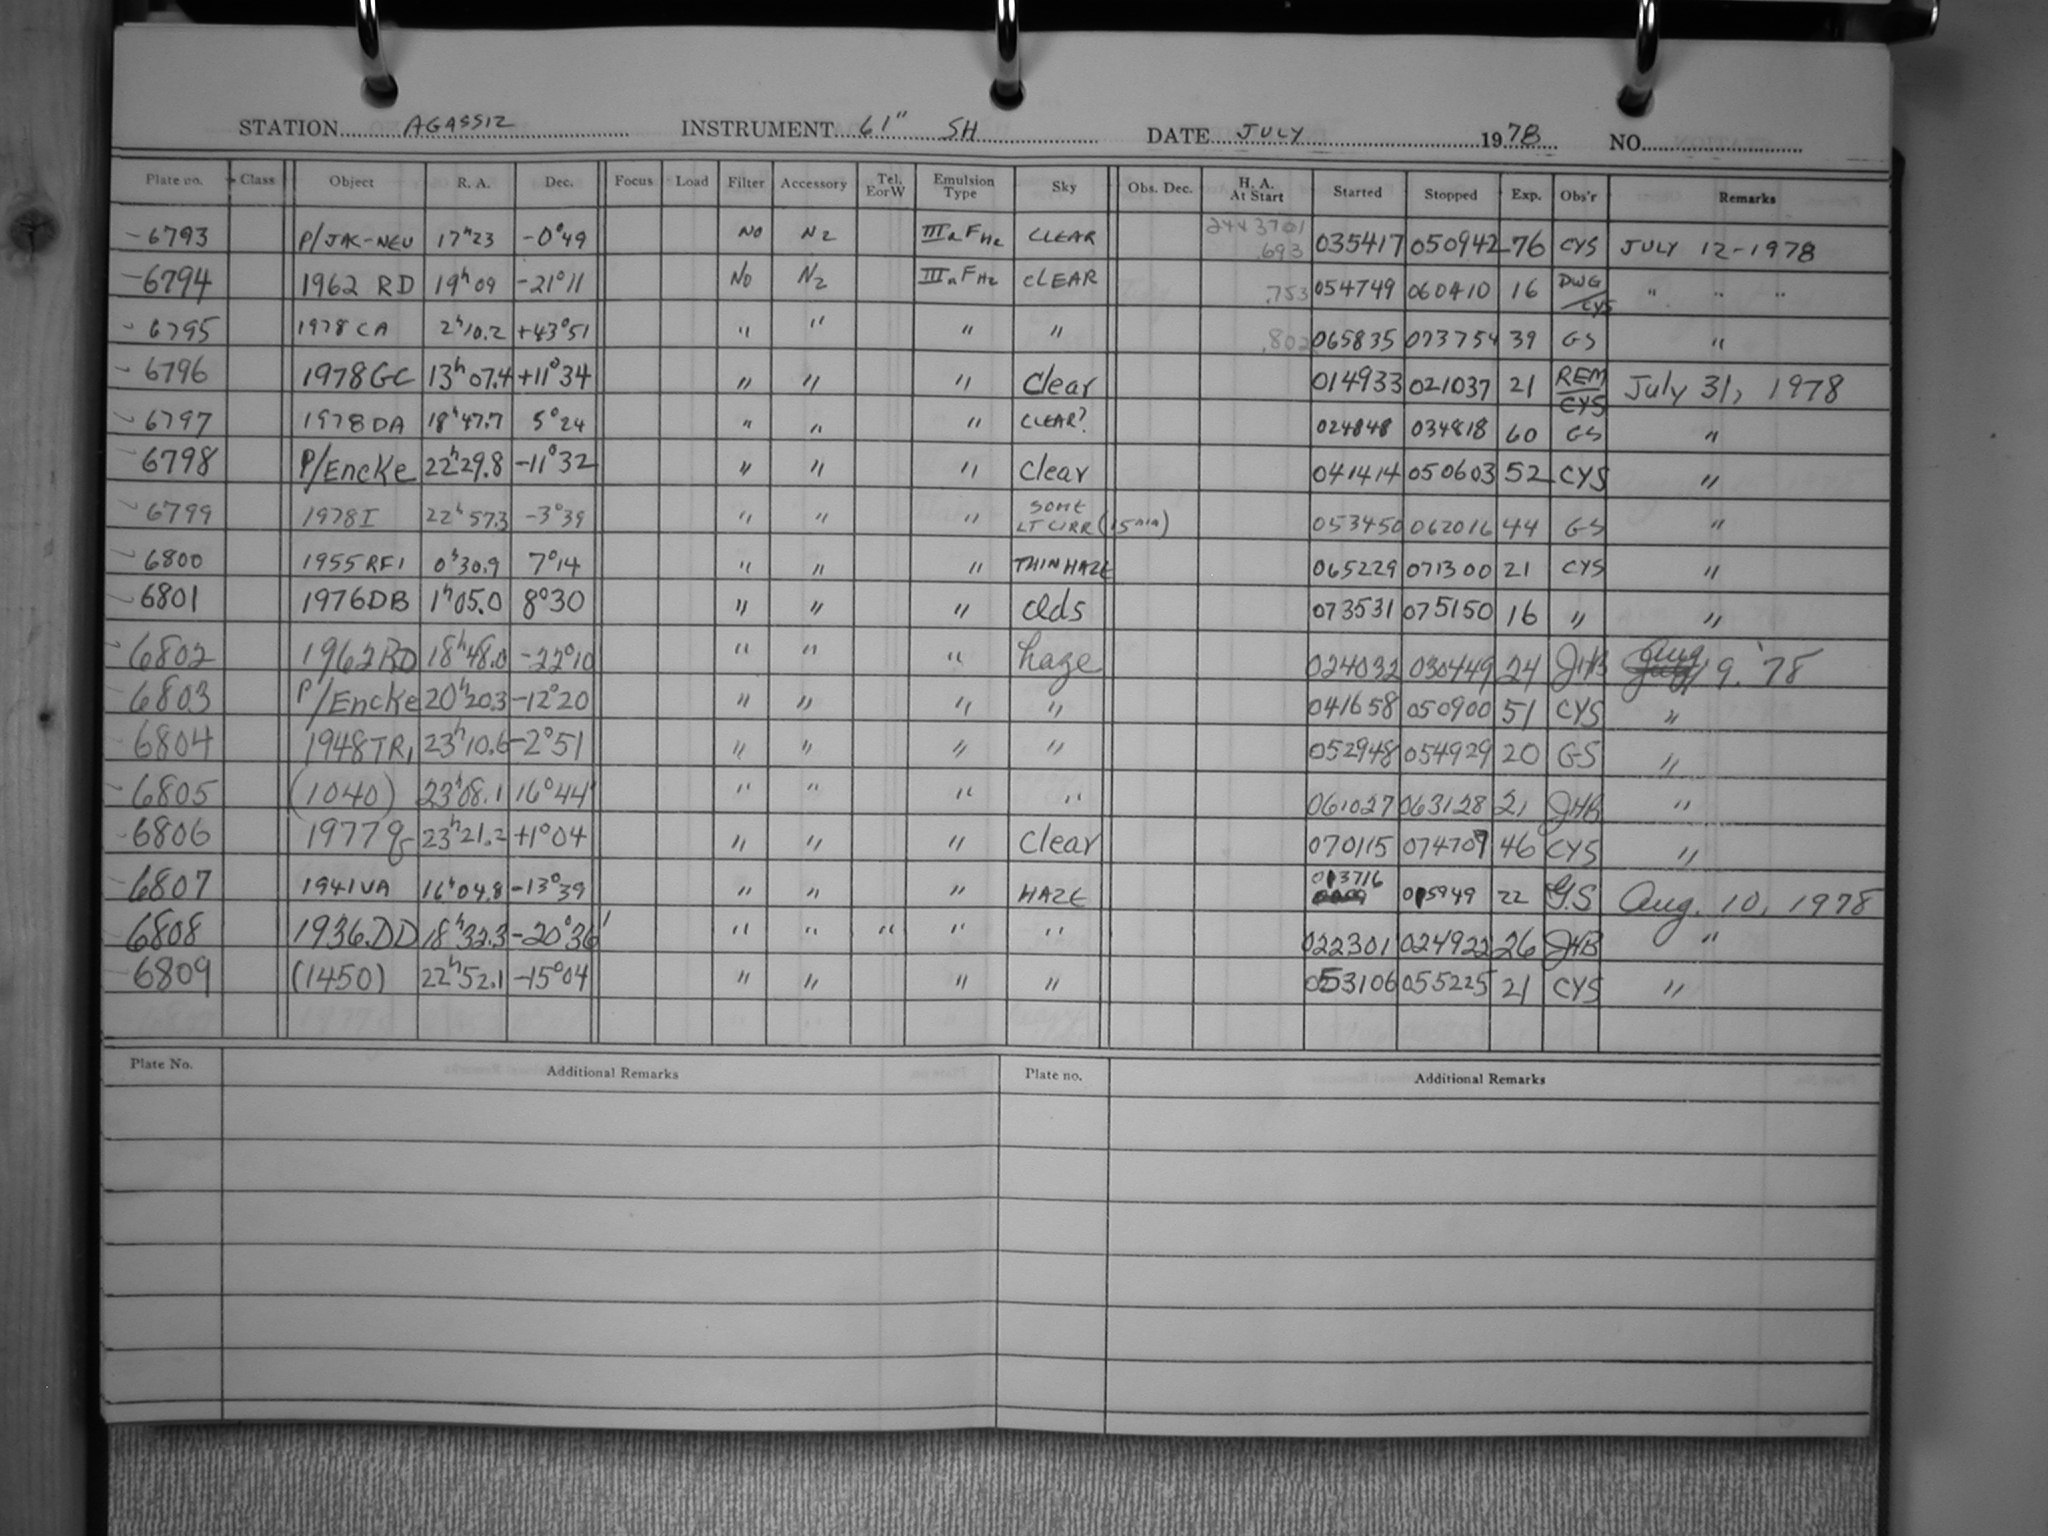 STATION AGASSIZ INSTRUMENT 61" SH DATE JULY 1978 NO.
Plate no. Class Object R. A. Dec. Focus Load Filter Accessory Tel. E or W Emulsion Type Sky Obs. Dec. H. A. At Start Started Stopped Exp. Obs'r Remarks
-6793 P/JAC-NEU 17h23 -0°49 NO N2 IIIaFH2 CLEAR 2443701 .693 035417 050942 76 CYS JULY 12-1978
-6794 1962 RD 19h09 -21°11 NO N2 IIIaFH2 CLEAR .753 054749 060410 16 DWG/CYS " " "
6795 1978 CA 2h10.2 +43°51 " " " " .802 065835 073754 39 GS "
6796 1978GC 13h07.4 +11°34 " " " Clear 014933 021037 21 REM/CYS July 31, 1978
6797 1978DA 18h47.7 5°24 " " " CLEAR? 024848 034818 60 GS "
6798 P/Encke 22h29.8 -11°32 " " " Clear 041414 050603 52 CYS "
6799 1978I 22h57.3 -3°39 " " " SOME LT CIRR (15min) 053450 062016 44 GS "
6800 1955RF1 0h30.9 7°14 " " " THIN HAZE 065229 071300 21 CYS "
6801 1976DB 1h05.0 8°30 " " " Clds 073531 075150 16 " "
6802 1962RD 18h48.0 -22°10 " " " haze 024032 030449 24 JHB Aug 9. '78
6803 P/Encke 20h20.3 -12°20 " " " " 041658 050900 51 CYS "
6804 1948TR1 23h10.6 -2°51 " " " " 052948 054929 20 GS "
6805 (1040) 23h08.1 16°44' " " " " 061027 063128 21 JHB "
6806 1977g 23h21.2 +1°04 " " " Clear 070115 074709 46 CYS "
6807 1941UA 16h04.8 -13°39 " " " HAZE 013716 015949 22 G.S Aug. 10, 1978
6808 1936.DD 18h32.3 -20°36' " " " " " 022301 024922 26 JHB "
6809 (1450) 22h52.1 -15°04 " " " " 053106 055225 21 CYS "
Plate No. Additional Remarks Plate no. Additional Remarks